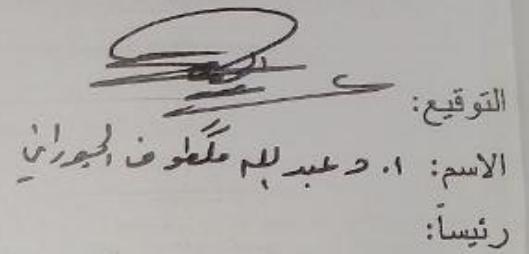 التوقيع:
الاسم: ا. د عبد لله مگطوف الجبوراني
رئيساً: